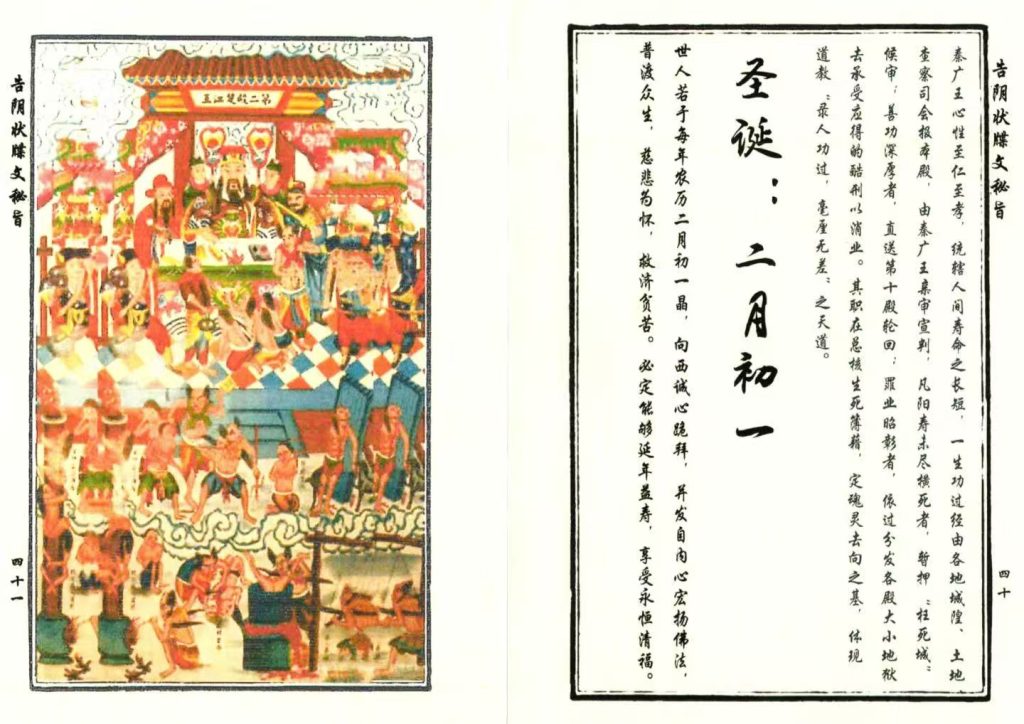 告阴状牒文秘旨
四十
秦广王心性至仁至孝，统辖人间寿命之长短，一生功过经由各地城隍、土地
查察司会报本殿，由秦广王亲审宣判，凡阳寿未尽横死者，暂押“枉死城”
候审；善功深厚者，直送第十殿轮回；罪业昭彰者，依过分发各殿大小地狱
去承受应得的酷刑以消业。其职在总核生死簿籍，定魂灵去向之基，体现
道教“录人功过，毫厘无差”之天道。
圣诞：二月初一
世人若于每年农历二月初一晶，向西诚心跪拜，并发自内心宏扬佛法，
普渡众生，慈悲为怀，救济贫苦。必定能够延年益寿，享受永恒清福。
第二殿楚江王
告阴状牒文秘旨
四十一